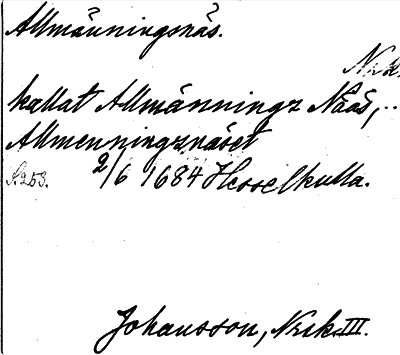 Allmänningsnäs.
kallat Allmänningz Nääs,..
Allmenningznäset
S. 253. 2/6 1684 Hesselkulla.
Johansson, Nrik. III.